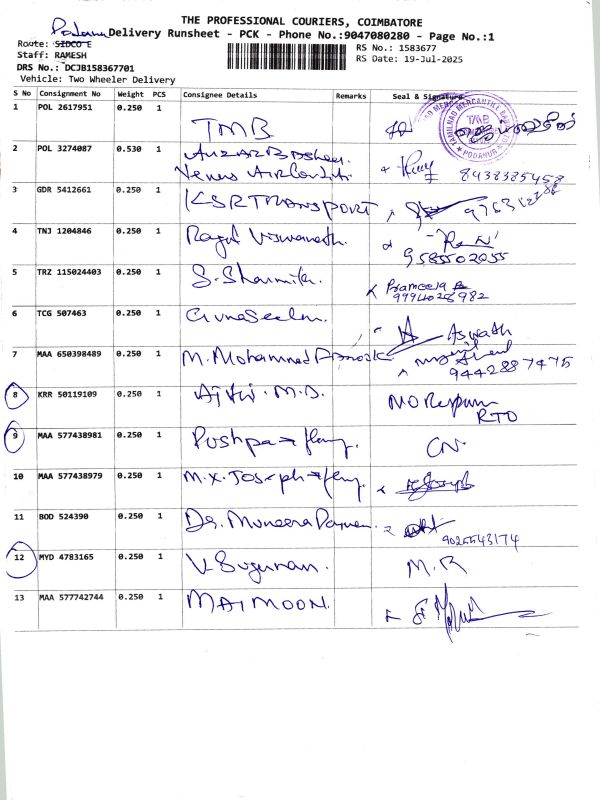 THE PROFESSIONAL COURIERS, COIMBATORE
Delivery Runsheet - PCK - Phone No.:9047080280 - Page No.:1
Route: SIDCO E
RS No.: 1583677
Staff: RAMESH
RS Date: 19-Jul-2025
DRS No.: DCJB158367701
Vehicle: Two Wheeler Delivery
S No Consignment No Weight PCS Consignee Details Remarks Seal & Signature
1 POL 2617951 0.250 1 TMB
2 POL 3274087 0.530 1
Venus 8438385458
3 GDR 5412661 0.250 1 KSR TRANSPORT
4 TNJ 1204846 0.250 1 Ragul Viswanath.
9585502055
5 TRZ 115024403 0.250 1 S. Sharmila. Prameela
6 TCG 507463 0.250 1 Gunaseelan. Aswath
7 MAA 650398489 0.250 1 M. Mohammed
9442887475
8 KRR 50119109 0.250 1 M.D.
RTO
9 MAA 577438981 0.250 1 Pushpa → CN.
10 MAA 577438979 0.250 1 M.X. Joseph →
11 BOD 524390 0.250 1 Dr. Muneera
9025543174
12 MYD 4783165 0.250 1 V Sugunan. M.R
13 MAA 577742744 0.250 1 MAIMOON.